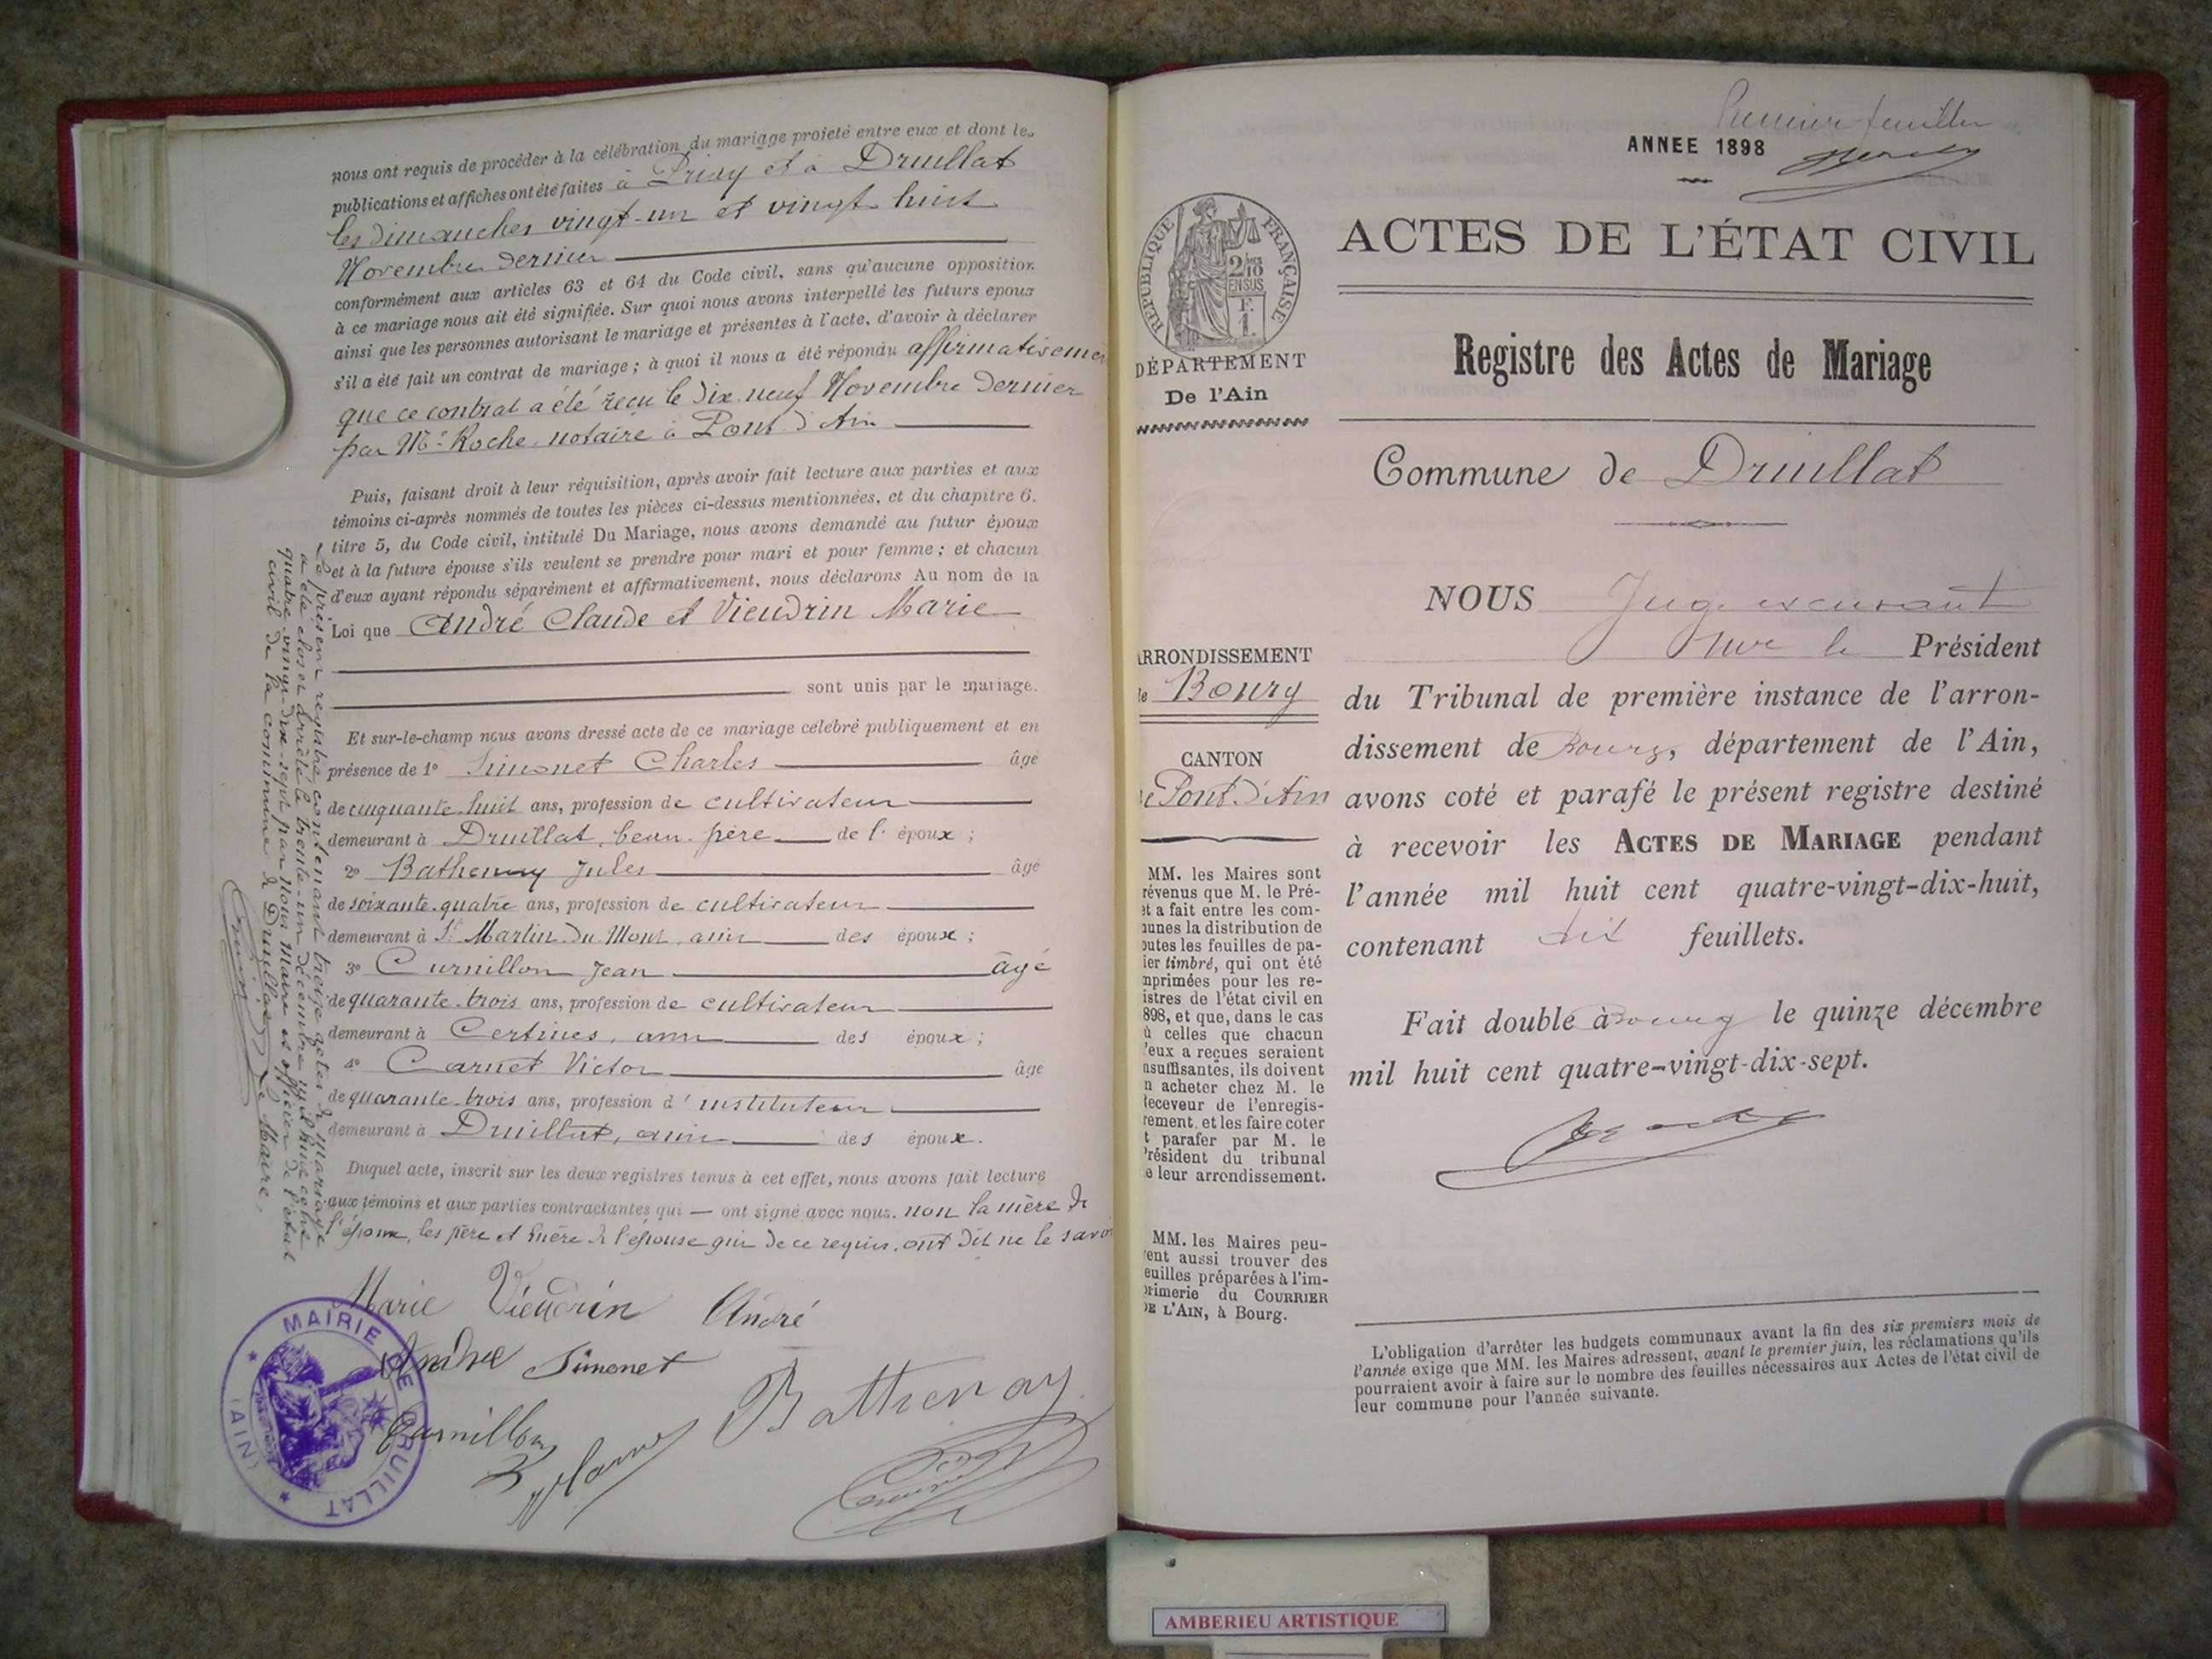 nous ont requis de procéder à la célébration du mariage projeté entre eux et dont les
publications et affiches ont été faites à Priay et à Druillat
les dimanches vingt-un et vingt-huit
Novembre dernier
conformément aux articles 63 et 64 du Code civil, sans qu'aucune opposition
à ce mariage nous ait été signifiée. Sur quoi nous avons interpellé les futurs époux
ainsi que les personnes autorisant le mariage et présentes à l'acte, d'avoir à déclarer
s'il a été fait un contrat de mariage ; à quoi il nous a été répondu affirmativement
que ce contrat a été reçu le dix neuf Novembre dernier
par Me Roche, notaire à Pont d'Ain
Puis, faisant droit à leur réquisition, après avoir fait lecture aux parties et aux
témoins ci-après nommés de toutes les pièces ci-dessus mentionnées, et du chapitre 6.
titre 5, du Code civil, intitulé Du Mariage, nous avons demandé au futur époux
et à la future épouse s'ils veulent se prendre pour mari et pour femme ; et chacun
d'eux ayant répondu séparément et affirmativement, nous déclarons Au nom de la
Loi que André Claude et Vieudrin Marie
sont unis par le mariage.
Et sur-le-champ nous avons dressé acte de ce mariage célébré publiquement et en
présence de 1º Simonet Charles âgé
de cinquante-huit ans, profession de cultivateur
demeurant à Druillat, beau-père de l' époux ;
2º Bathenay Jules âgé
de soixante-quatre ans, profession de cultivateur
demeurant à St Martin du Mont, ami des époux ;
3º Curnillon Jean âgé
de quarante-trois ans, profession de cultivateur
demeurant à Certines, ami des époux ;
4º Carnet Victor âgé
de quarante-trois ans, profession d' instituteur
demeurant à Druillat, ami des époux.
Duquel acte, inscrit sur les deux registres tenus à cet effet, nous avons fait lecture
aux témoins et aux parties contractantes qui — ont signé avec nous, non la mère de
l'époux, les père et mère de l'épouse qui de ce requis, ont dit ne le savoir
Marie Vieudrin André
André Simonet
Curnillon Bathenay
MAIRIE DE DRUILLAT (AIN)
Le présent registre contenant treize actes de mariage
a été clos et arrêté le trente-un décembre mil huit cent
quatre-vingt-dix-sept par nous Maire et officier de l'état
civil de la commune de Druillat
Le Maire,
Premier feuillet
ANNEE 1898
RÉPUBLIQUE FRANÇAISE
2/10
EN SUS
F.
1.
ACTES DE L'ÉTAT CIVIL
DÉPARTEMENT
De l'Ain
Registre des Actes de Mariage
Commune de Druillat
ARRONDISSEMENT
de Bourg
CANTON
de Pont d'Ain
MM. les Maires sont
révenus que M. le Pré-
et a fait entre les com-
unes la distribution de
outes les feuilles de pa-
ier timbré, qui ont été
mprimées pour les re-
istres de l'état civil en
898, et que, dans le cas
ù celles que chacun
'eux a reçues seraient
nsuffisantes, ils doivent
n acheter chez M. le
Receveur de l'enregis-
rement, et les faire coter
t parafer par M. le
Président du tribunal
e leur arrondissement.
MM. les Maires peu-
vent aussi trouver des
euilles préparées à l'im-
primerie du COURRIER
DE L'AIN, à Bourg.
NOUS Juge
le Président
du Tribunal de première instance de l'arron-
dissement de Bourg, département de l'Ain,
avons coté et parafé le présent registre destiné
à recevoir les ACTES DE MARIAGE pendant
l'année mil huit cent quatre-vingt-dix-huit,
contenant dix feuillets.
Fait double à Bourg le quinze décembre
mil huit cent quatre-vingt-dix-sept.
L'obligation d'arrêter les budgets communaux avant la fin des six premiers mois de
l'année exige que MM. les Maires adressent, avant le premier juin, les réclamations qu'ils
pourraient avoir à faire sur le nombre des feuilles nécessaires aux Actes de l'état civil de
leur commune pour l'année suivante.
AMBERIEU ARTISTIQUE